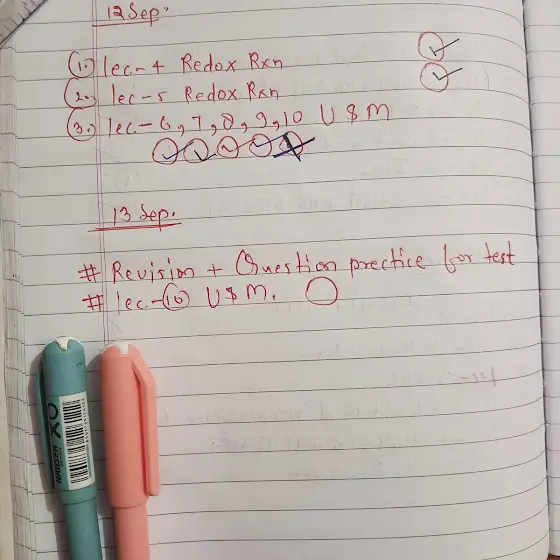 12 Sep.
1. lec-4 Redox Rxn
2. lec-5 Redox Rxn
3. lec-6, 7, 8, 9, 10 U $ M
13 Sep.
# Revision + Question prectice for test
# lec-10 U $ M.
HAUSER XO